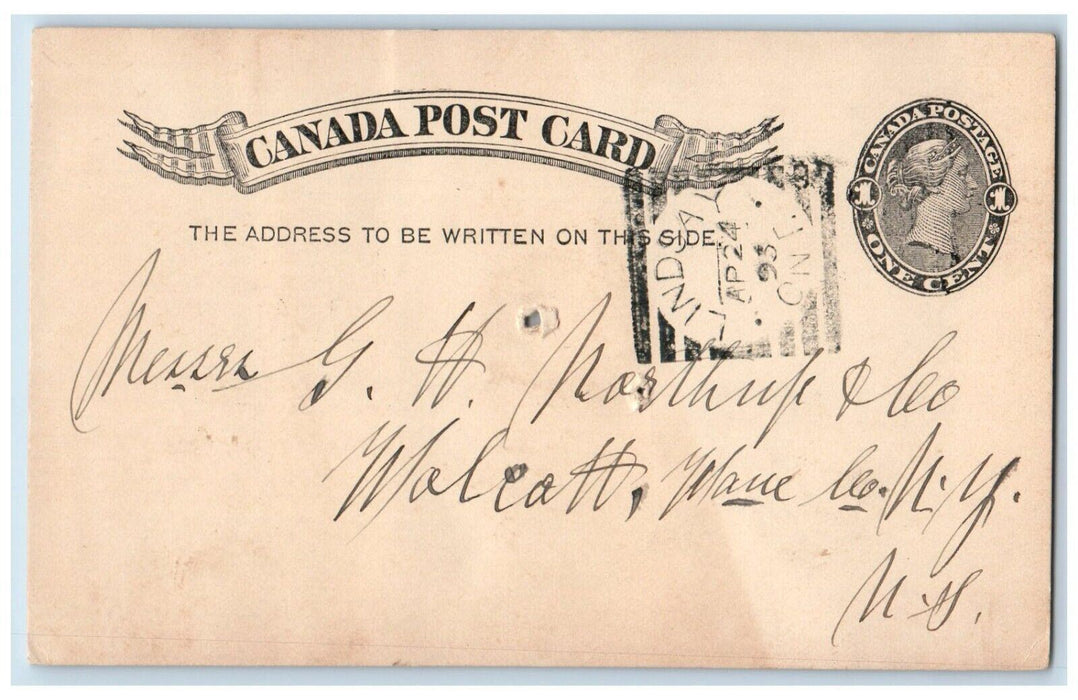 CANADA POST CARD
CANADA POSTAGE
1 1
ONE CENT
THE ADDRESS TO BE WRITTEN ON THIS SIDE
LINDSAY
AP 24
93
ONT
Messrs G. H. Northup & Co
Wolcott, Wane Co. N.Y.
U.S.